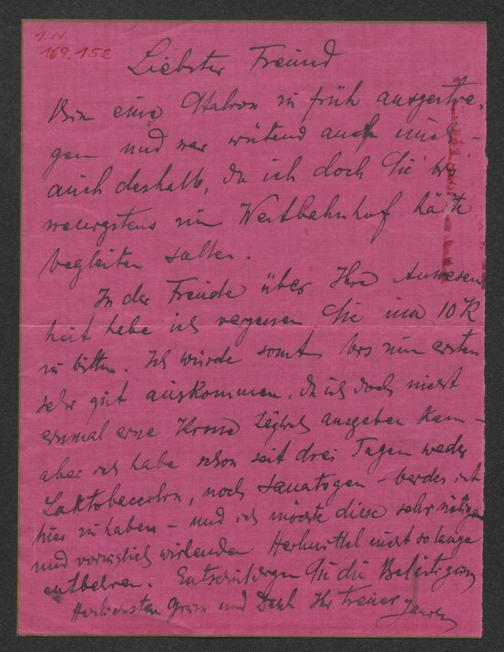 I.N.
169.152
Liebster Freund
Bin eine Station zu früh ausgestie-
gen und war wütend auf mich -
auch deshalb, da ich doch Sie bis
wenigstens zum Westbahnhof hätte
begleiten sollen.
In der Freude über Ihre Anwesen
heit habe ich vergessen Sie um 10 K
zu bitten. Ich würde somit bis zum ersten
sehr gut auskommen, da ich doch nicht
einmal eine Krone täglich ausgeben kann -
aber ich habe schon seit drei Tagen weder
Laktobacillin, noch Sanatogen - beides ist
hier zu haben - und ich möchte diese sehr nötigen
und vorzüglich wirkenden Heilmittel nicht so lange
entbehren. Entschuldigen Sie die Belästigung
Herzlichsten Gruss und Dank Ihr treuer